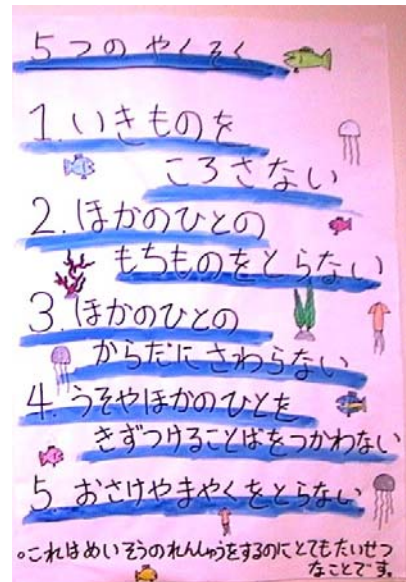 5つの やくそく
1. いきものを
ころさない
2. ほかのひとの
もちものをとらない
3. ほかのひとの
からだにさわらない
4. うそやほかのひとを
きずつけることばをつかわない
5. おさけやまやくをとらない
。これはめいそうのれんしゅうをするのにとてもたいせつ
なことです。